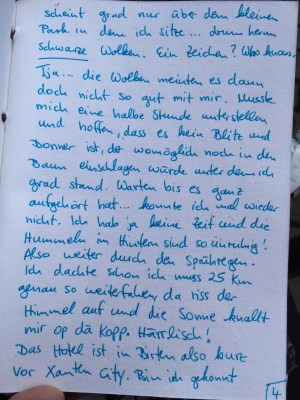 scheint grad nur über dem kleinen
Park in dem ich sitze... drum herum
schwarze Wolken. Ein Zeichen? Who knows.
Tja... die Wolken meinten es dann
doch nicht so gut mit mir. Musste
mich eine halbe Stunde unterstellen
und hoffen, dass es kein Blitz und
Donner ist, der womöglich noch in den
Baum einschlagen würde unter dem ich
grad stand. Warten bis es ganz
aufgehört hat... konnte ich mal wieder
nicht. Ich hab ja keine Zeit und die
Hummeln im Hintern sind so unruhig!
Also weiter durch den Sprühregen.
Ich dachte schon ich muss 25 km
genau so weiterfahren, da riss der
Himmel auf und die Sonne knallt
mir op dä Kopp. Härrlisch!
Das Hotel ist in Birten also kurz
vor Xanten City. Bin ich gekonnt
4